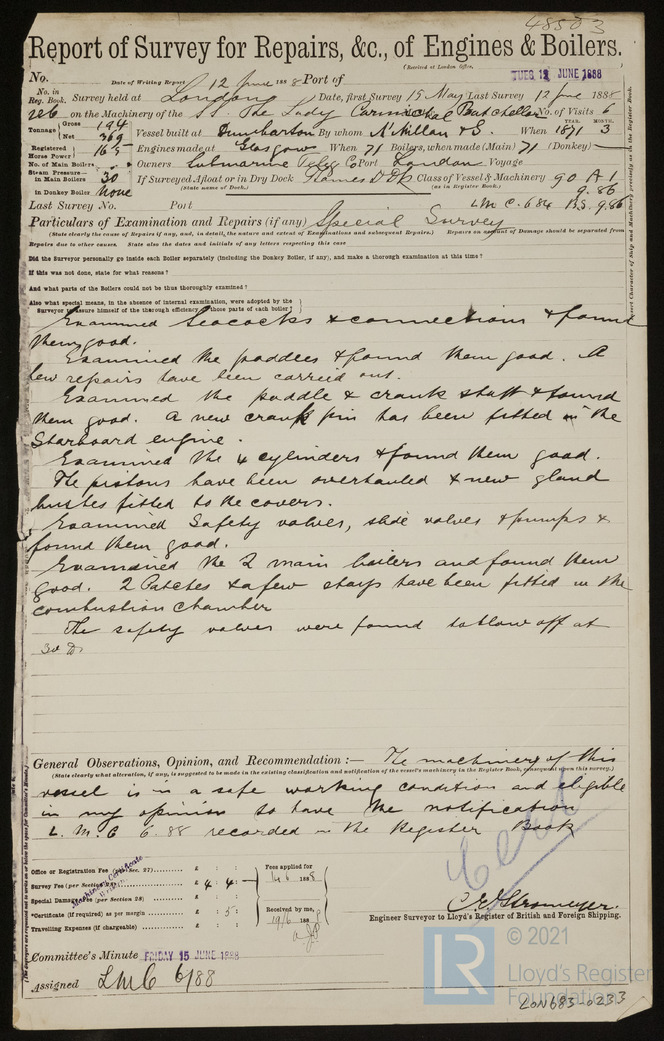 48503
Report of Survey for Repairs, &c., of Engines & Boilers.
(Received at London Office,
TUES. 12 JUNE 1888
No.
Date of Writing Report 12 June 1888 Port of
No. in Reg. Book.
Survey held at London Date, first Survey 15 May Last Survey 12 June 1888
on the Machinery of the S.S. The Lady Carmichael No. of Visits 6
Tonnage Gross 194
Net 369
Vessel built at Dumbarton By whom A. McMillan & S. When 1871 YEAR. MONTH. 3
Registered Horse Power 165
Engines made at Glasgow When 71 Boilers, when made (Main) 71 (Donkey) —
No. of Main Boilers
Owners Submarine Teleg Co Port London Voyage
Steam Pressure in Main Boilers 30
in Donkey Boiler None
If Surveyed Afloat or in Dry Dock Thames D Dk Class of Vessel & Machinery 90 A 1
(State name of Dock.) (as in Register Book.) 9.86
Last Survey No. Port LMC. 6 84 B.S. 9.86
Particulars of Examination and Repairs (if any) Special Survey
(State clearly the cause of Repairs if any, and, in detail, the nature and extent of Examinations and subsequent Repairs.) Repairs on account of Damage should be separated from
Repairs due to other causes. State also the dates and initials of any letters respecting this case
Did the Surveyor personally go inside each Boiler separately (including the Donkey Boiler, if any), and make a thorough examination at this time?
If this was not done, state for what reasons?
And what parts of the Boilers could not be thus thoroughly examined?
Also what special means, in the absence of internal examination, were adopted by the
Surveyor to assure himself of the thorough efficiency of those parts of each boiler?
Examined Seacocks & connections & found
them good.
Examined the paddles & found them good. A
few repairs have been carried out.
Examined the paddle & crank shaft & found
them good. A new crank pin has been fitted in the
Starboard engine.
Examined the 4 cylinders & found them good.
The pistons have been overhauled & new gland
bushes fitted to the covers.
Examined Safety valves, slide valves & pumps &
found them good.
Examined the 2 main boilers and found them
good. 2 Patches & a few stays have been fitted in the
combustion chamber
The safety valves were found to blow off at
30 lb
General Observations, Opinion, and Recommendation :— The machinery of this
(State clearly what alteration, if any, is suggested to be made in the existing classification and notification of the vessel's machinery in the Register Book, consequent upon this survey.)
vessel is in a safe working condition and eligible
in my opinion to have the notification
L. M. C 6.88 recorded in the Register Book
Cert
Office or Registration Fee (per Sec. 27) £ : :
Survey Fee (per Section 28) £ 4 : 4 : —
Special Damage Fee (per Section 28) £ : :
*Certificate (if required) as per margin £ : 5 :
Travelling Expenses (if chargeable) £ : :
Machinery Certificate
Fees applied for
14/6 1888
Received by me,
19/6 188
C. E. Stromeyer.
Engineer Surveyor to Lloyd's Register of British and Foreign Shipping.
Committee's Minute FRIDAY 15 JUNE 1888
Assigned LMC 6/88
© 2021
LR
Lloyd's Register
Foundation
LON683-0233